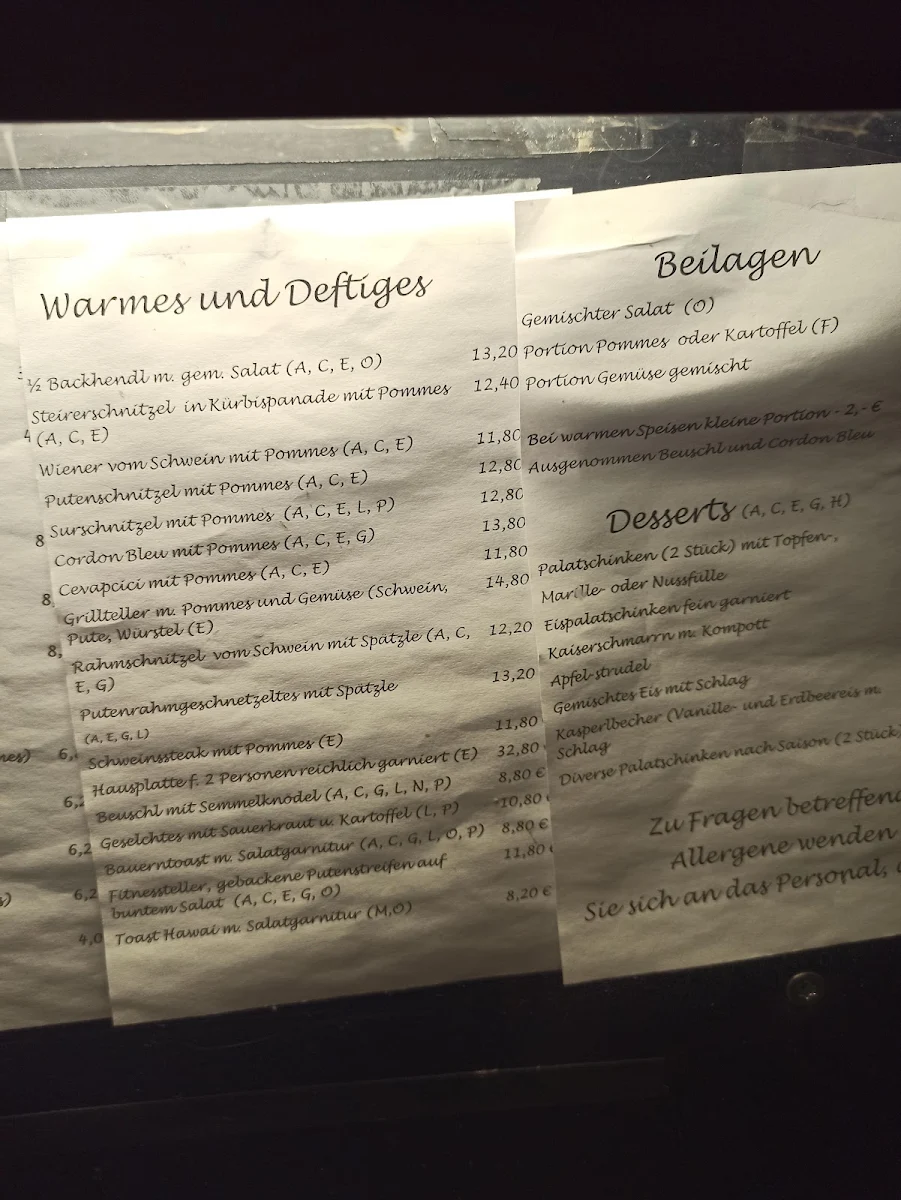 Warmes und Deftiges
½ Backhendl m. gem. Salat (A, C, E, O) 13,20
Steirerschnitzel in Kürbispanade mit Pommes 12,40
(A, C, E)
Wiener vom Schwein mit Pommes (A, C, E) 11,80
Putenschnitzel mit Pommes (A, C, E) 12,80
Surschnitzel mit Pommes (A, C, E, L, P) 12,80
Cordon Bleu mit Pommes (A, C, E, G) 13,80
Cevapcici mit Pommes (A, C, E) 11,80
Grillteller m. Pommes und Gemüse (Schwein, 14,80
Pute, Würstel (E)
Rahmschnitzel vom Schwein mit Spätzle (A, C, 12,20
E, G)
Putenrahmgeschnetzeltes mit Spätzle 13,20
(A, E, G, L)
Schweinssteak mit Pommes (E) 11,80
Hausplatte f. 2 Personen reichlich garniert (E) 32,80
Beuschl mit Semmelknödel (A, C, G, L, N, P) 8,80 €
Geselchtes mit Sauerkraut u. Kartoffel (L, P) 10,80
Bauerntoast m. Salatgarnitur (A, C, G, L, O, P) 8,80 €
Fitnessteller, gebackene Putenstreifen auf 11,80
buntem Salat (A, C, E, G, O)
Toast Hawai m. Salatgarnitur (M,O) 8,20 €
Beilagen
Gemischter Salat (O)
Portion Pommes oder Kartoffel (F)
Portion Gemüse gemischt
Bei warmen Speisen kleine Portion - 2,- €
Ausgenommen Beuschl und Cordon Bleu
Desserts (A, C, E, G, H)
Palatschinken (2 Stück) mit Topfen-,
Marille- oder Nussfülle
Eispalatschinken fein garniert
Kaiserschmarrn m. Kompott
Apfel-strudel
Gemischtes Eis mit Schlag
Kasperlbecher (Vanille- und Erdbeereis m.
Schlag
Diverse Palatschinken nach Saison (2 Stück)
Zu Fragen betreffend
Allergene wenden
Sie sich an das Personal,